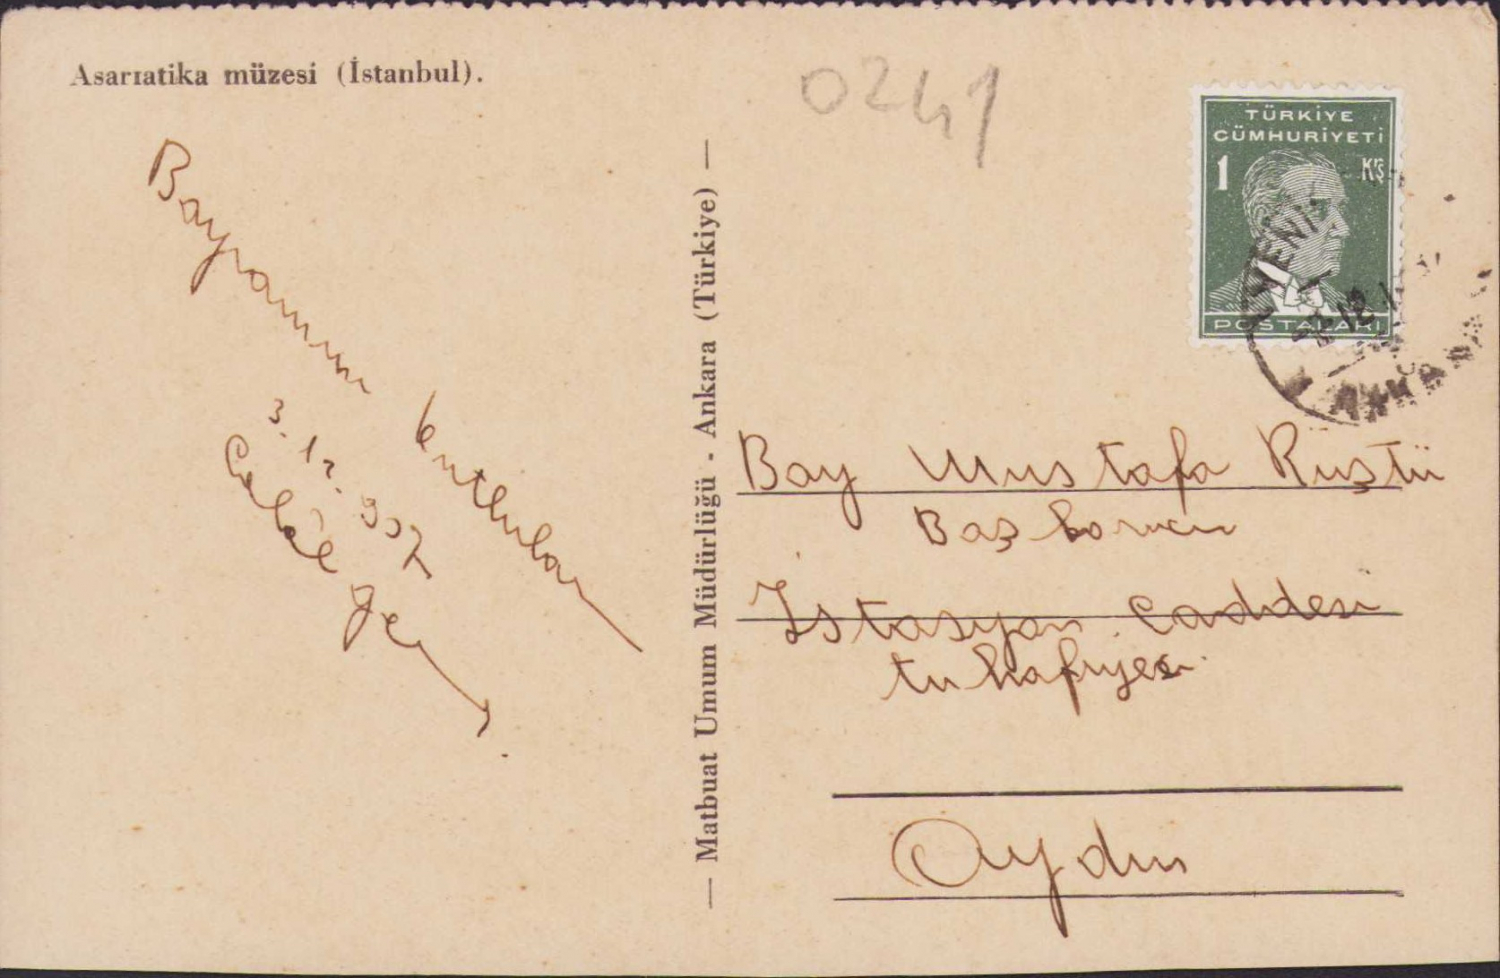 Asarıatika müzesi (İstanbul).
0241
TÜRKİYE
CÜMHURİYETİ
1 Krş
POSTALARI
YENİ
12
ANKARA
Bayramını kutlular
3.12.937
Celâl
— Matbuat Umum Müdürlüğü - Ankara (Türkiye) —
Bay Mustafa Ruştü
İstasyon caddesi
tuhafiyeci
Aydın